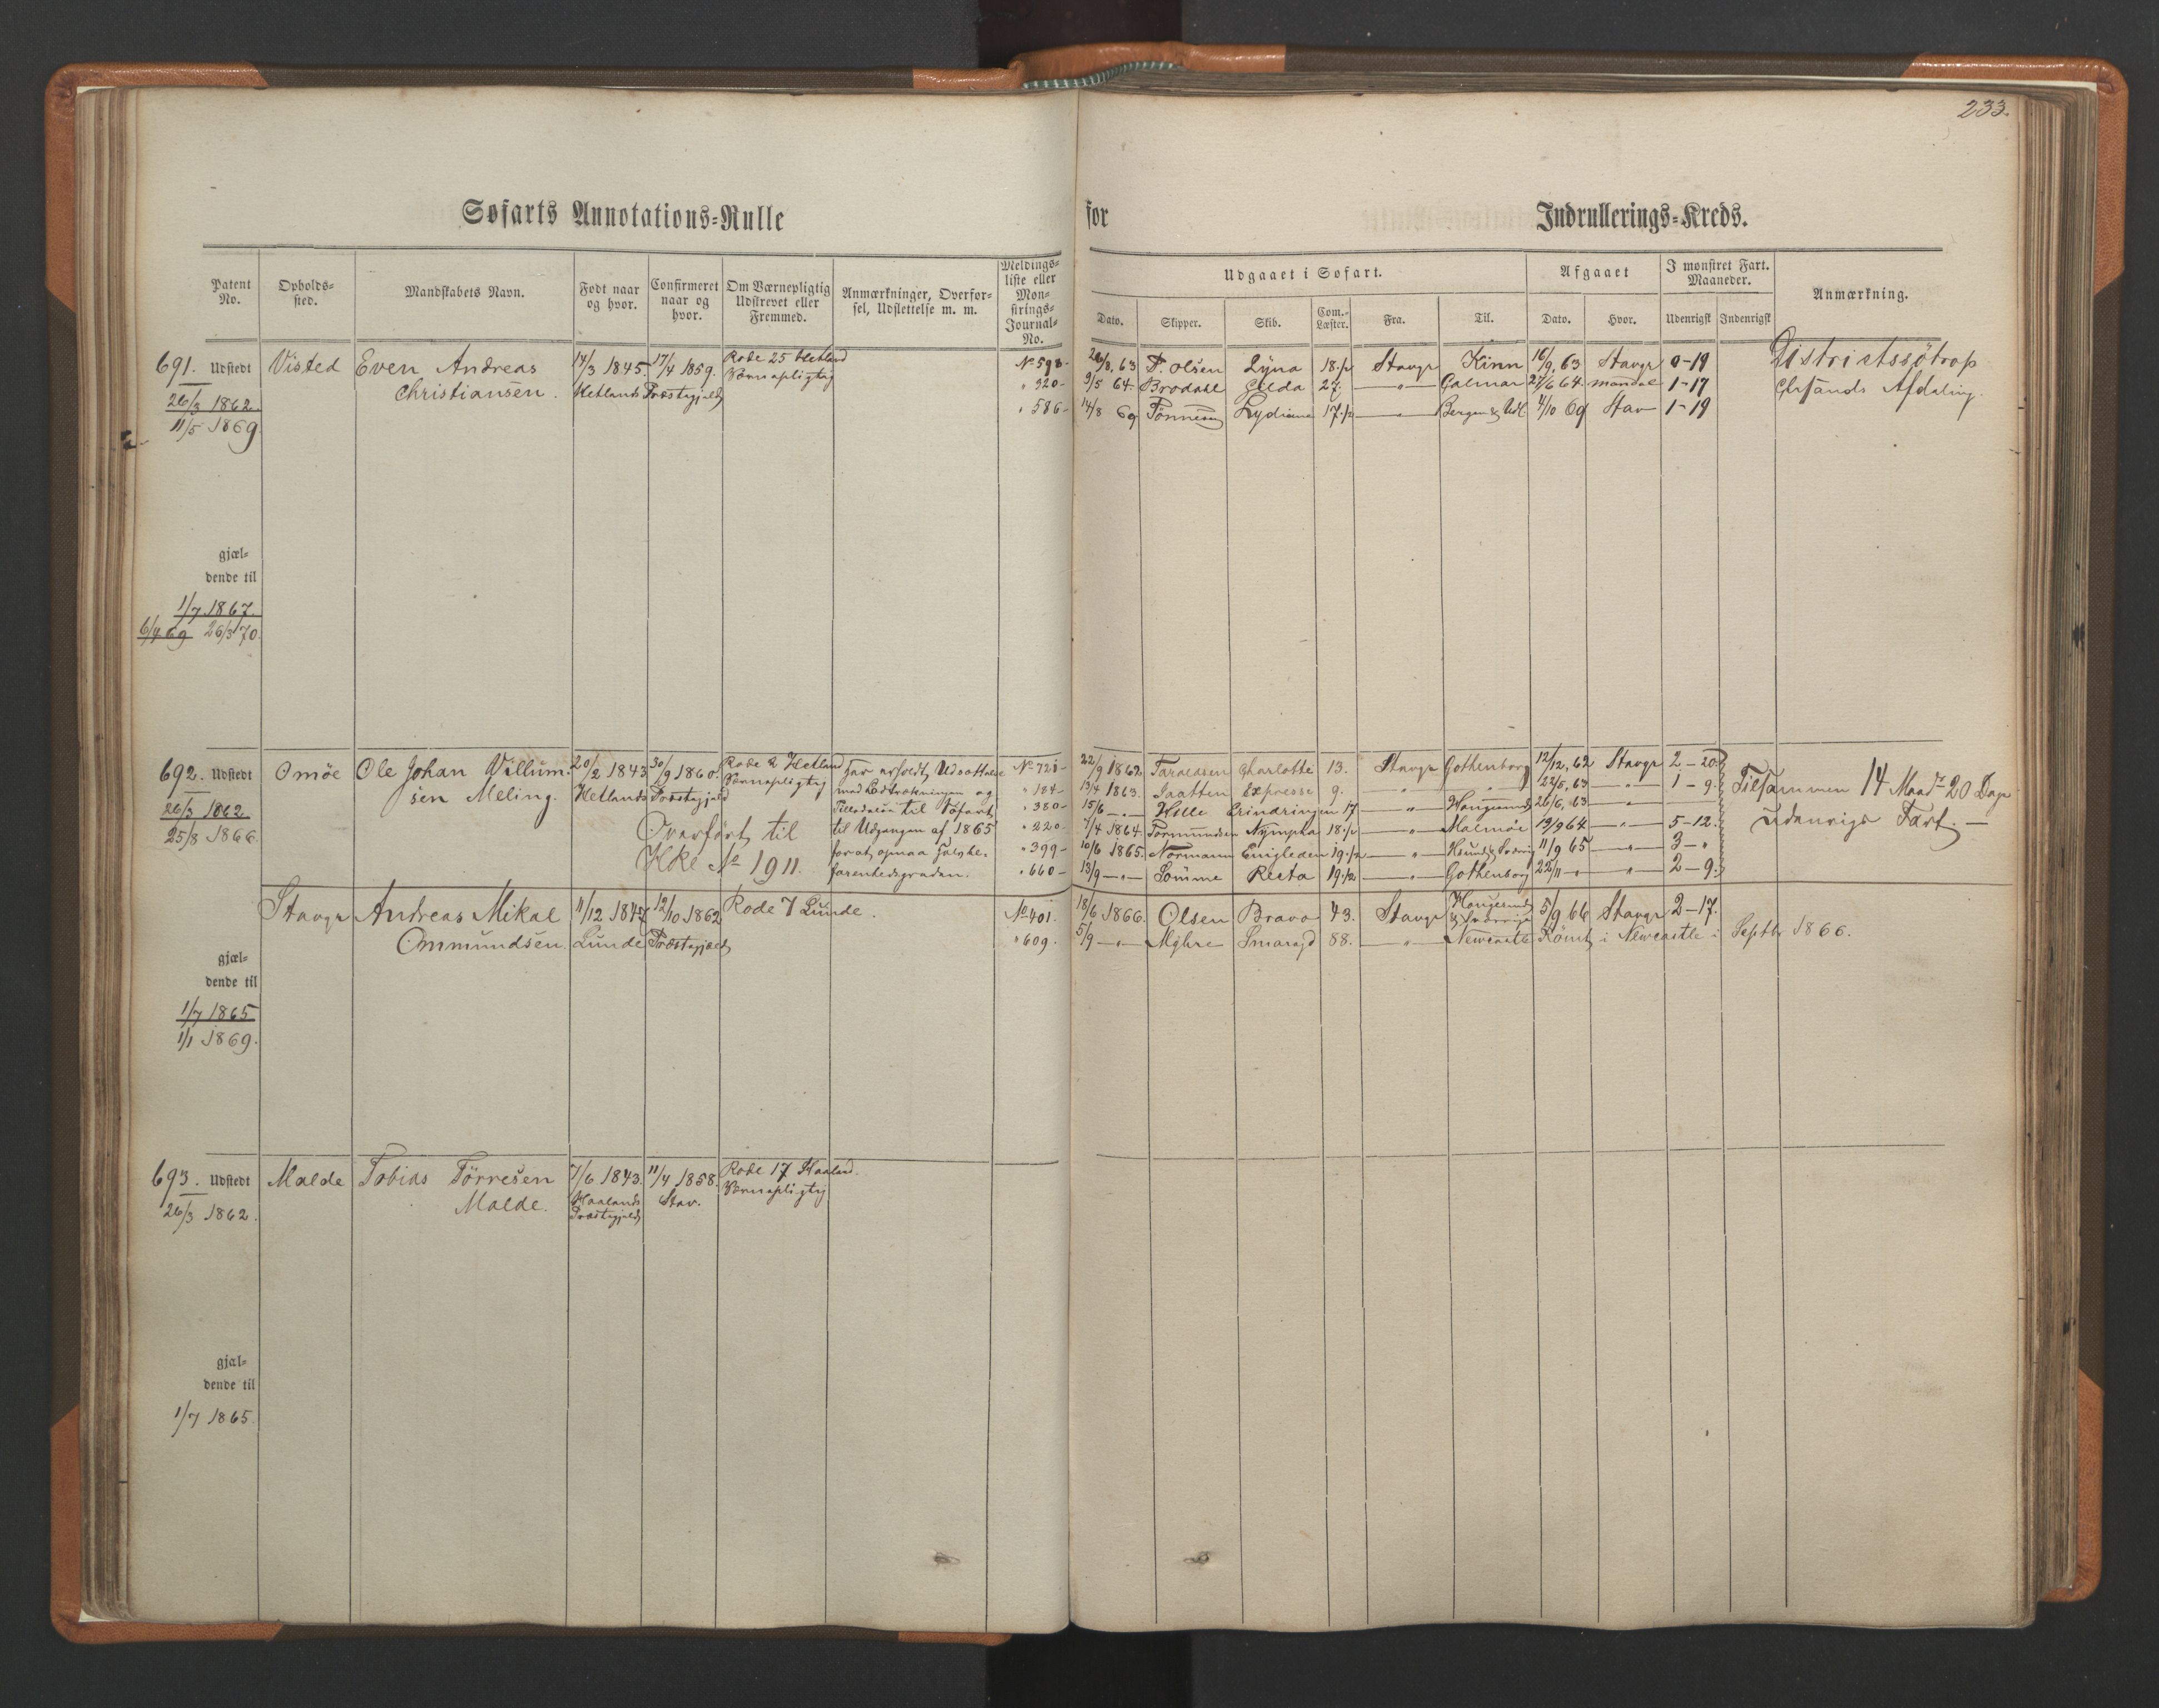 233.
Søfarts Annotations-Rulle for Indrullerings-Kreds.
Patent No. Opholds-sted. Mandskabets Navn. Født naar og hvor. Confirmeret naar og hvor. Om Værnepligtig Udskrevet eller Fremmed. Anmærkninger, Overførsel, Udslettelse m. m. Meldings-liste eller Mønstrings-Journal-No.
Udgaaet i Søfart. Afgaaet I mønstret Fart. Maaneder. Anmærkning.
Dato. Skipper. Skib. Com.-Læster. Fra. Til. Dato. Hvor. Udenrigsk Indenrigsk
691. Udstedt Visted Even Andreas 14/3 1845 17/4 1859. Rode 25 Hetland No 598 26/8, 63 P. Olsen Lyna 18 1/2 Stavgr Kinn 16/9, 63 Stavgr 0-19 Districtssötrop
26/3 1862. Christiansen. Hetlands Præstegjeld Værnepligtig " 320 9/5 64. Brodahl Gilda 27. — " — Calmar 27/6 64 Mandal 1-17 Chrsands Afdeling.
11/5 1869 " 586 14/8 69 Tönnesen Lydiana 17 1/2 Bergen & Udl 4/10 69 Stav 1-19
gjæl-
dende til
1/7 1867.
6/4 69 26/3 70.
692. Udstedt Omöe Ole Johan Villum- 20/2 1843 30/9 1860. Rode 2 Hetland Har erholdt Udsættelse No 721 22/9 1862 Taraldsen Charlotte 13. Stavgr Gothenborg 12/12, 62 Stavgr 2-20
26/3 1862 sen Meling. Hetlands Præstegjeld Værnepligtig med Udtrækningen og " 184 13/4 1863. Jaatten Expresse 9. " " 22/5, 63 " 1-9. Tilsammen 14 Maadr 20 Dage
25/8 1866. Tilladelse til Söfart " 380 15/6 — " — Hille Erindringen 17 " Haugesund 26/6, 63 " udenrigs Fart. —
Overfört til til Udgangen af 1865 " 220 7/4 1864. Tormundsen Nympha 18 1/2 " Malmöe 19/9 64 " 5-12.
Hke No 1911. for at opnaa Halvbe- " 399 10/6 1865. Normann Enigheden 19 1/2 " 11/9 65 " 3 - "
farenhedsgraden. " 660 13/9 — " — Sömme Recta 19 1/2 " Gothenborg 22/11 " " 2-9.
Stavgr Andreas Mikal 11/12 1847 12/10 1862 Rode 7 Lunde. No 401. 18/6 1866. Olsen Bravo 43. Stavgr Haugesund & Sverrige 5/9 66 Stavgr 2-17.
Ommundsen. Lunde Præstegjeld " 609. 5/9 — " — Myhre Smaragd 88. " Newcastle Römt i Newcastle i Septbr 1866.
gjæl-
dende til
1/7 1865
1/1 1869.
693. Udstedt Malde Tobias Törresen 7/6 1843. 11/4 1858. Rode 17 Haaland.
26/3 1862. Malde. Haalands Præstegjeld Stav. Værnepligtig
gjæl-
dende til
1/7 1865.